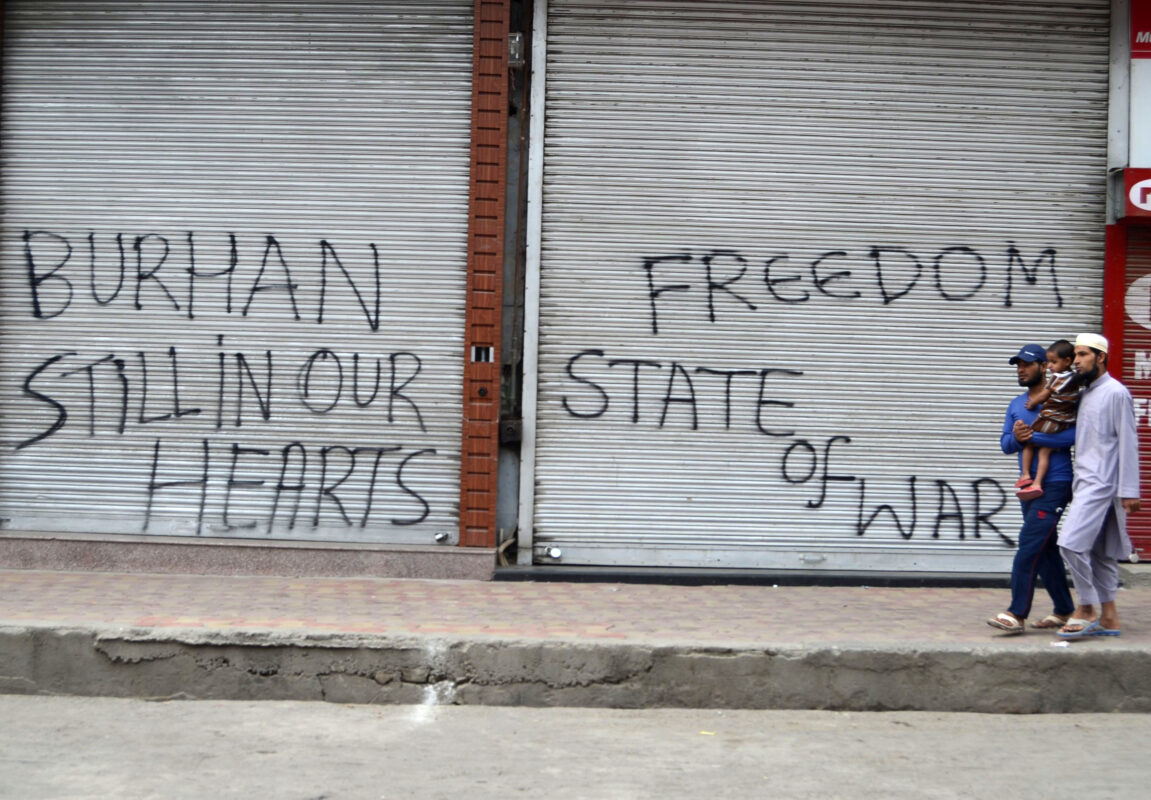 BURHAN
STiLL iN OUR
HEARTS
FREEDOM
STATE
oF
WAR